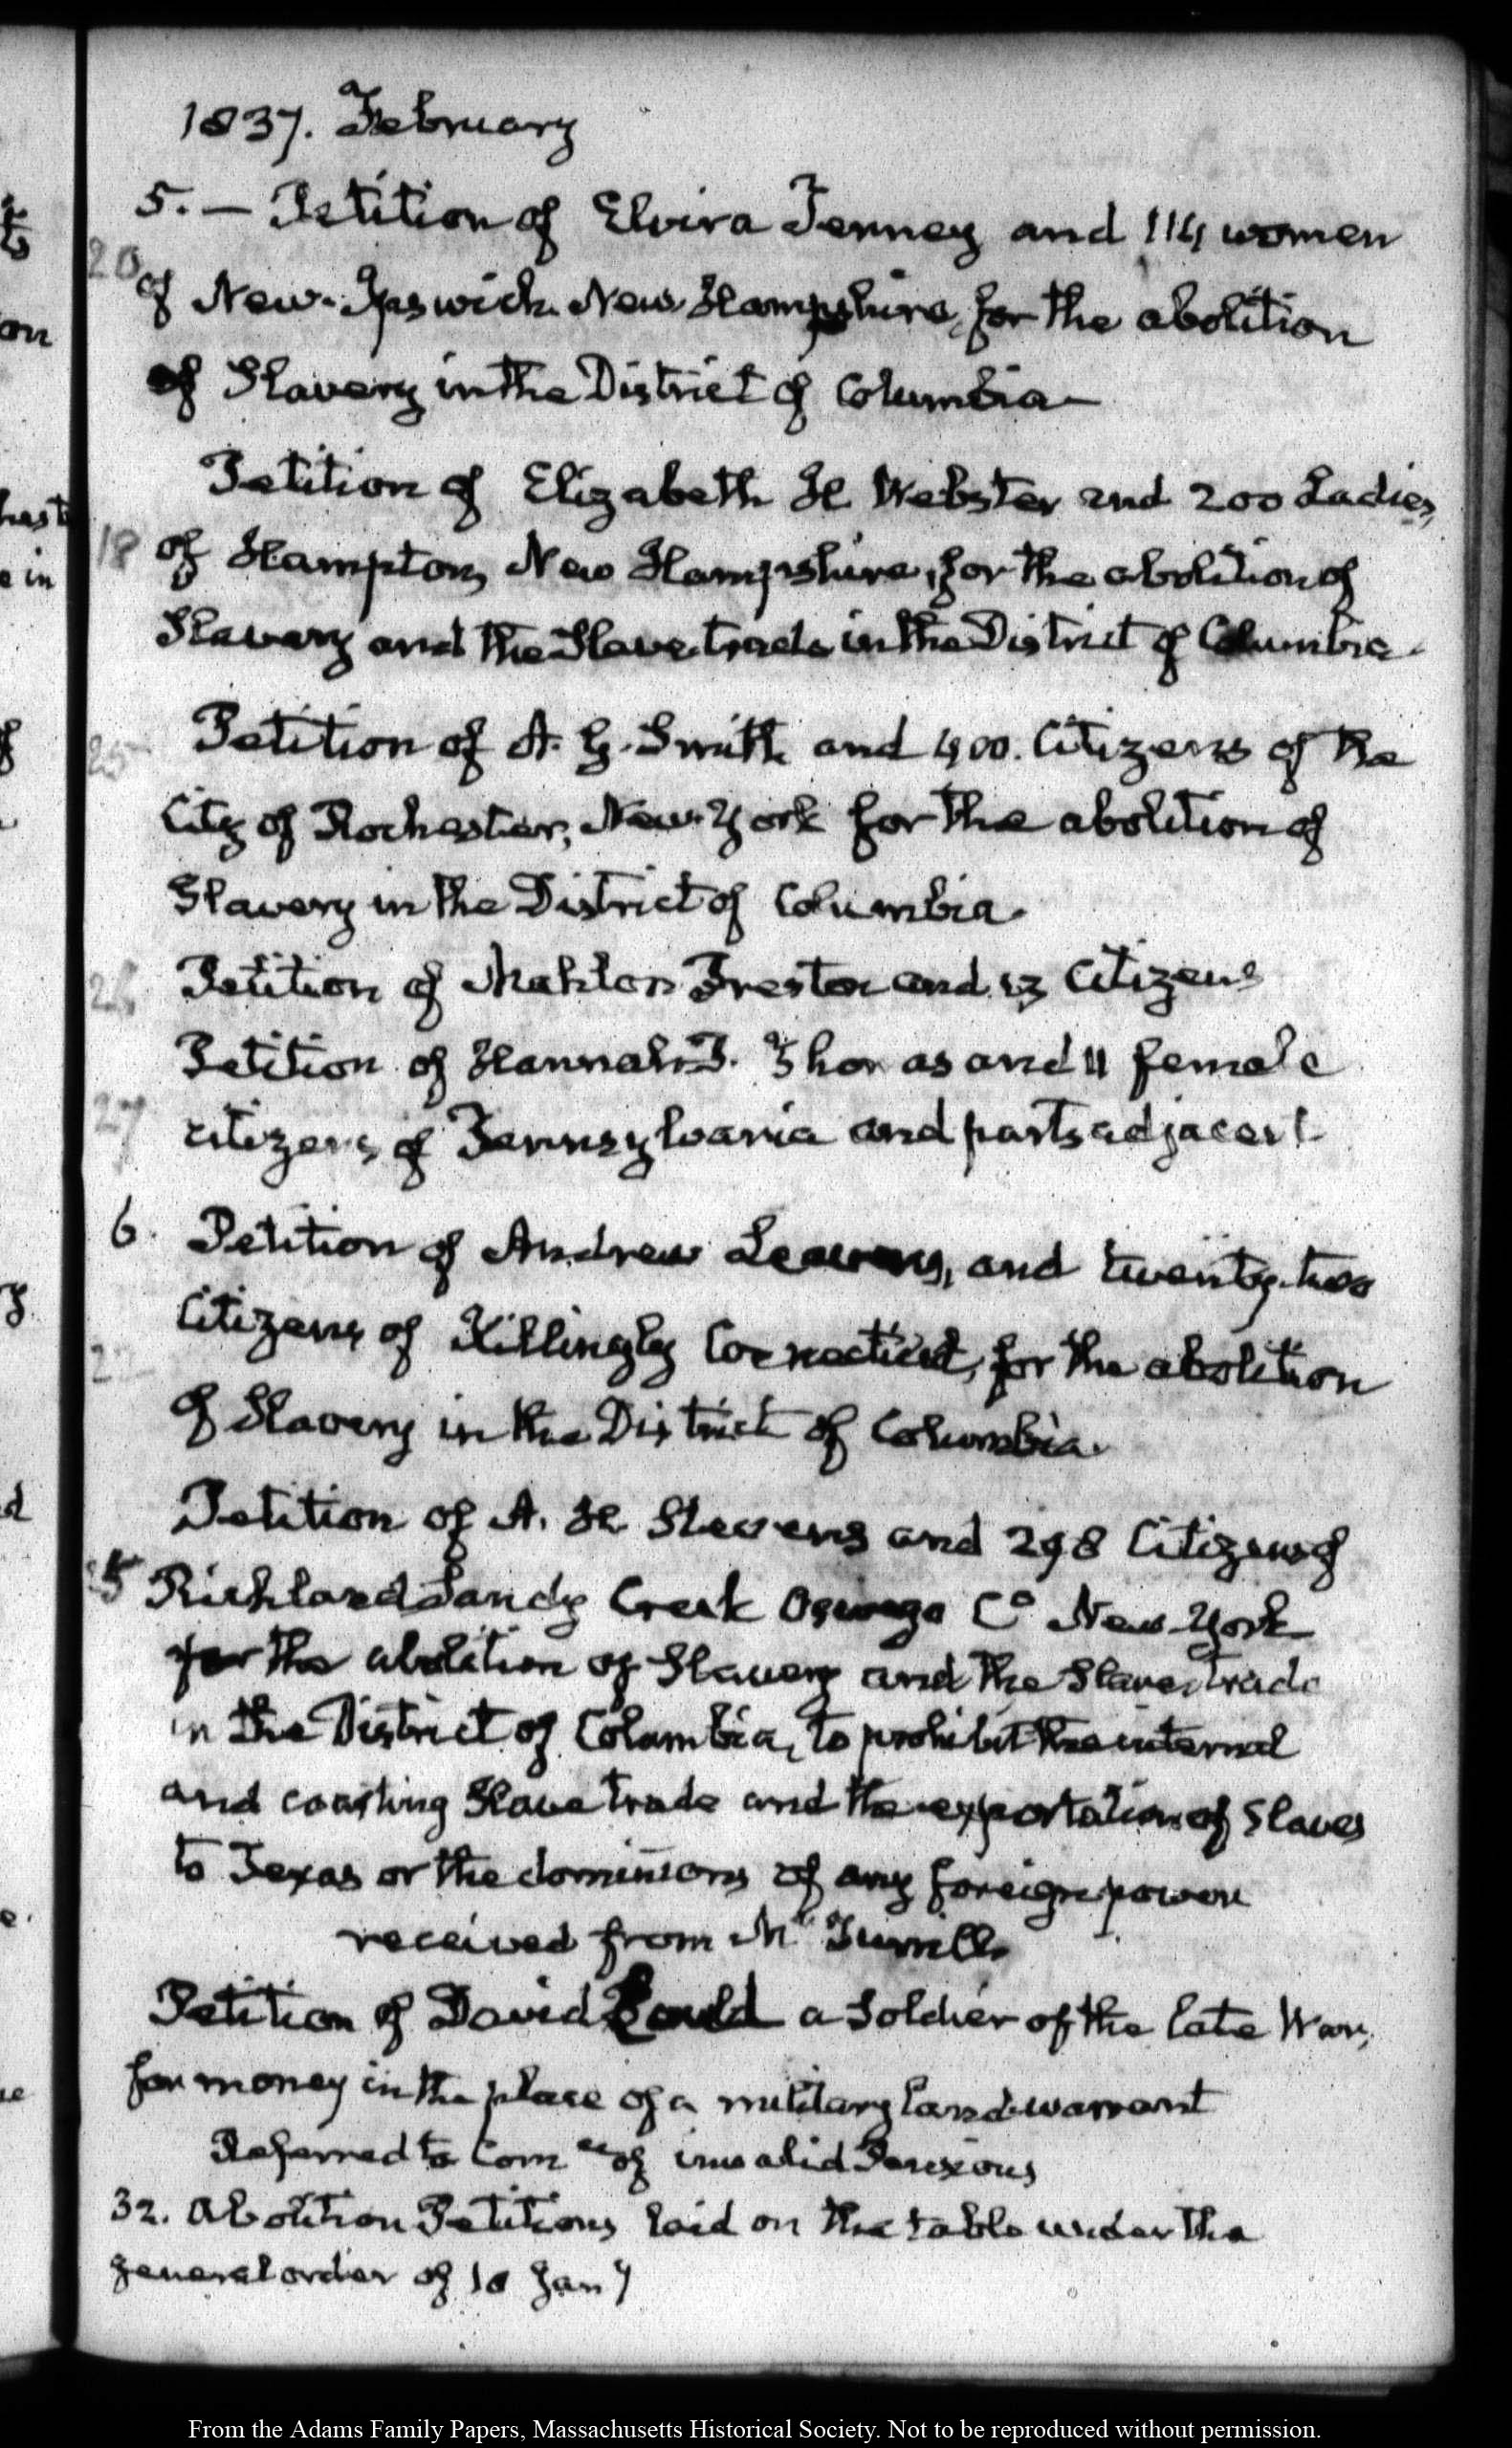 1837. February
5. — Petition of Elvira Fenney and 114 women
20
of New-Ipswich New Hampshire, for the abolition
of Slavery in the District of Columbia —
Petition of Elizabeth H Webster and 200 Ladies,
18
of Hampton, New Hampshire, for the abolition of
Slavery and the Slave trade in the District of Columbia.
Petition of A. G. Smith and 400. Citizens of the
25
City of Rochester, New-York for the abolition of
Slavery in the District of Columbia.
Petition of Mahlon Preston and 13 Citizens
26
Petition of Hannah P. Thomas and 11 female
27
citizens of Pennsylvania and parts adjacent
6. Petition of Andrew and twenty-two
Citizens of Killingly Connecticut, for the abolition
22
of Slavery in the District of Columbia.
Petition of A. H Stevens and 298 Citizens of
Richland Sandy Creek Oswego Co New-York
for the abolition of Slavery and the Slave trade
in the District of Columbia, to prohibit the internal
and coasting Slave trade and the exportation of Slaves
to Texas or the dominions of any foreign power
received from Mr Turrill.
Petition of David Gould a Soldier of the late War,
for money in the place of a military land warrant
Referred to Comee of invalid Pensions
32. Abolition Petitions laid on the table under the
general order of 18 Jany
From the Adams Family Papers, Massachusetts Historical Society. Not to be reproduced without permission.